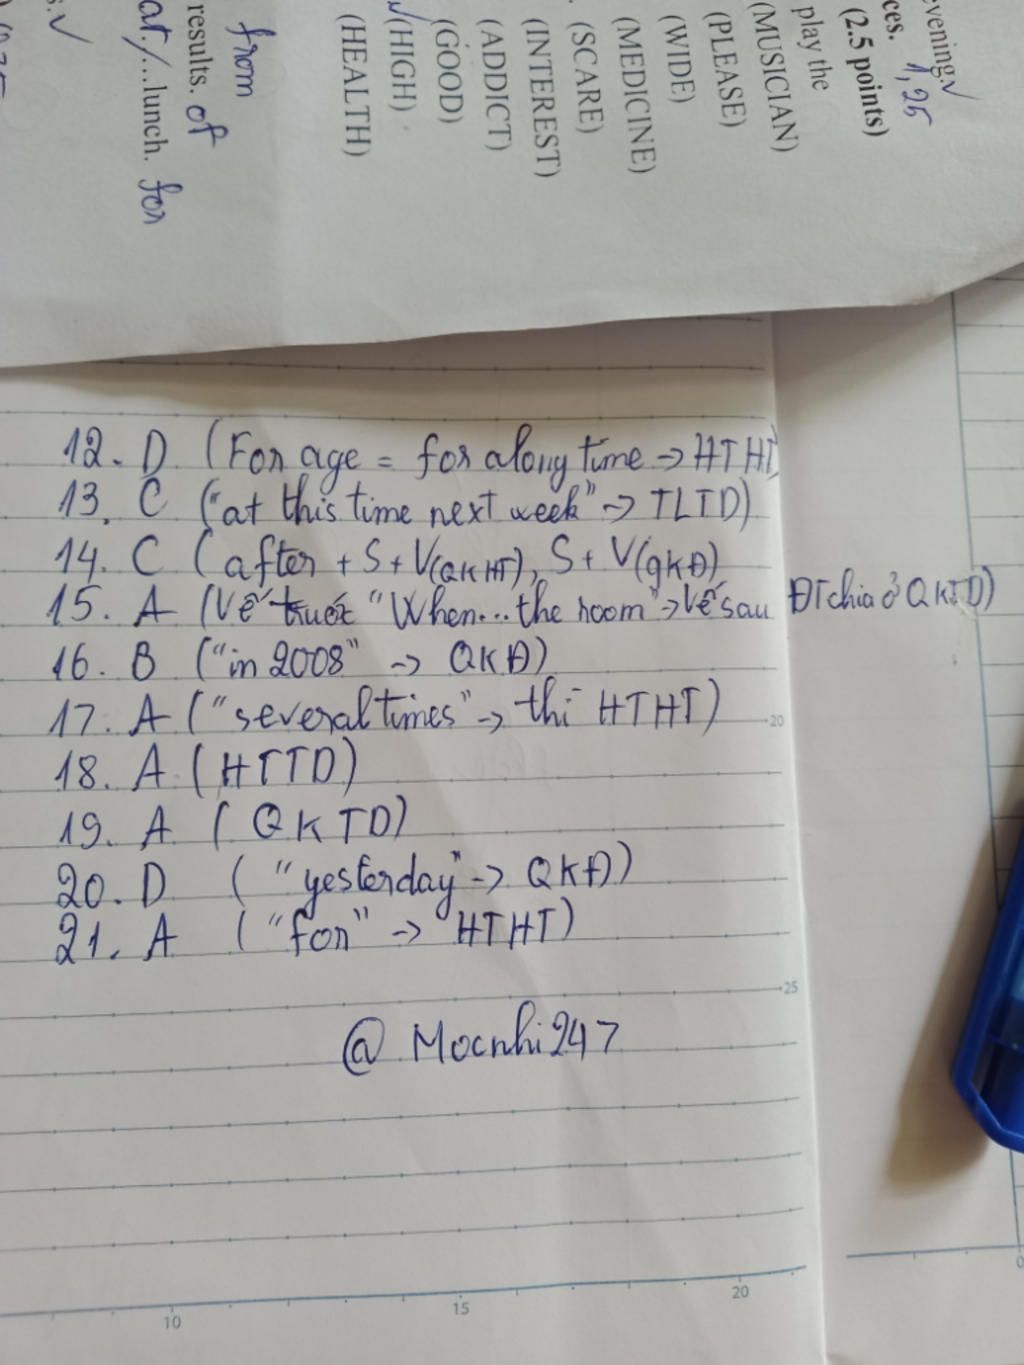 evening.✓
ces. 1,25
(2.5 points)
play the
(MUSICIAN)
(PLEASE)
(WIDE)
(MEDICINE)
(SCARE)
(INTEREST)
(ADDICT)
(GOOD)
(HIGH)
(HEALTH)
from
results. of
at/...lunch. for
s.✓
12. D (For age = for along time -> HTHT
13. C ("at this time next week" -> TLTD)
14. C (after + S + V(QKHT), S + V(QKĐ)
15. A (Vế trước "When... the room" -> Vế sau ĐT chia ở QKTD)
16. B ("in 2008" -> QKĐ)
17. A ("several times" -> thì HTHT)
18. A (HTTD)
19. A (QKTD)
20. D ("yesterday" -> QKĐ)
21. A ("for" -> HTHT)
@ Mocnhi247
20
25
10 15 20